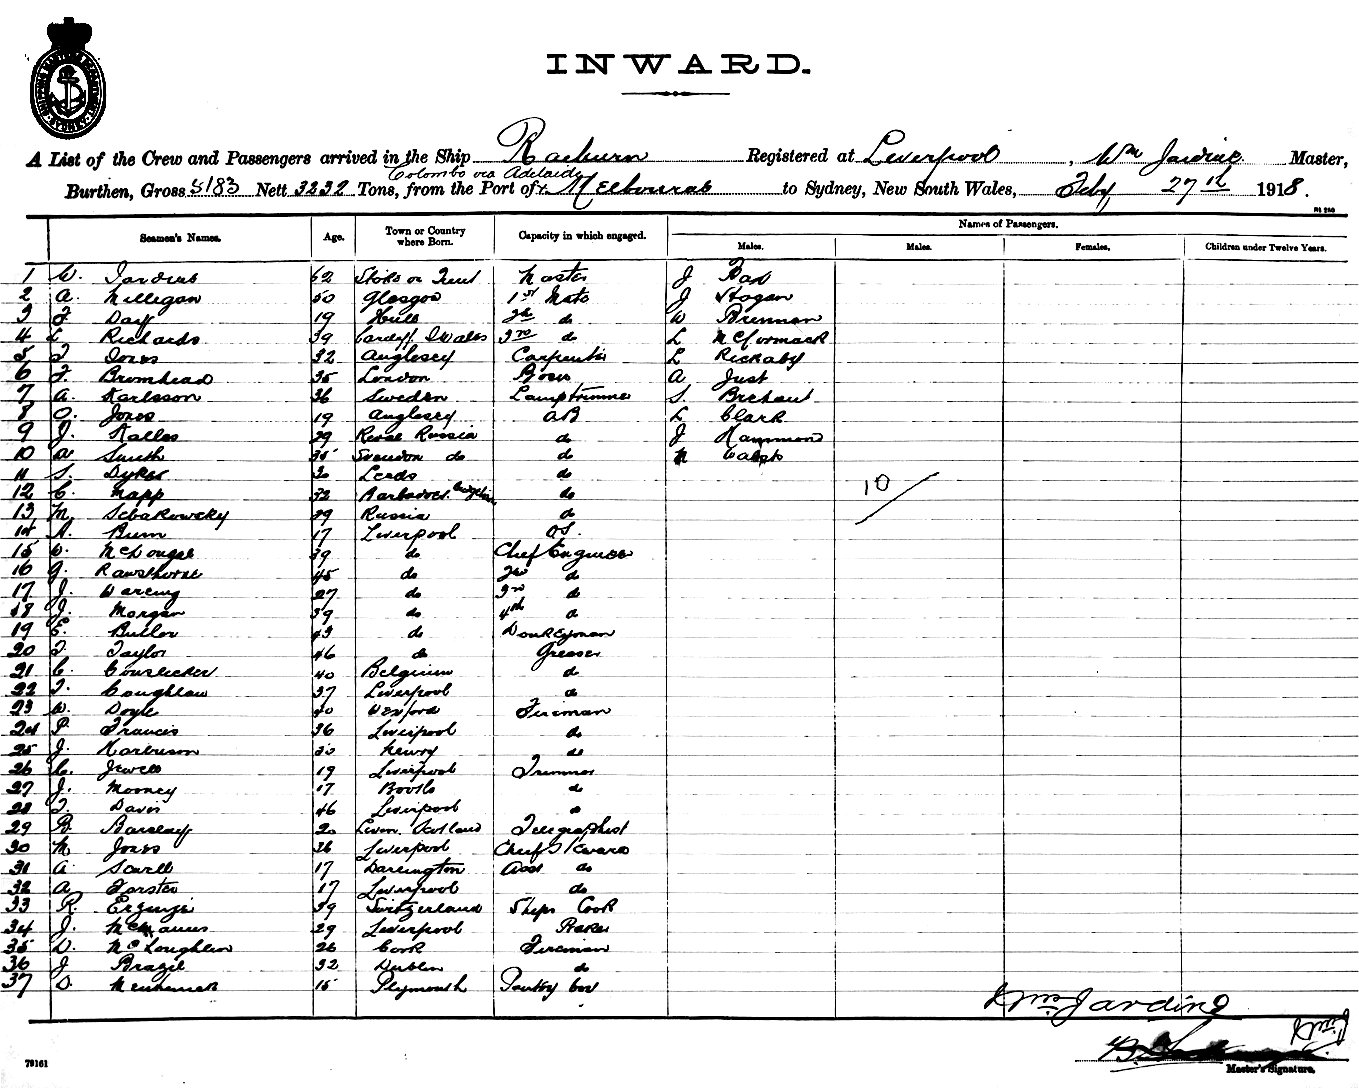 INWARD.
A List of the Crew and Passengers arrived in the Ship Raeburn Registered at Liverpool, Wm Jardine Master,
Colombo via Adelaide
Burthen, Gross 5183 Nett 3232 Tons, from the Port of Melbourne to Sydney, New South Wales, Feby 27th 1918.
Seamen's Names. Age. Town or Country where Born. Capacity in which engaged. Names of Passengers.
Males. Males. Females. Children under Twelve Years.
1 W. Jardine 62 Stoke on Trent Master J
2 A. Milligan 50 Glasgow 1st Mate J Hogan
3 F. Day 19 Hull 2nd do W Brennan
4 L Richards 39 Cardiff S Wales 3rd do L McCormack
5 T Jones 32 Anglesey Carpenter L Rickaby
6 F. Bromhead 35 London Bosun A Just
7 A. Karlsson 36 Sweden Lamptrimmer S.
8 O. Jones 19 Anglesey AB L Clark
9 J. Kalles 29 Russia do J Hammond
10 A Smith 35 do do M Walsh
11 S. Dykes 30 Leeds do
12 C. Mapp 32 Barbadoes do 10
13 M. 29 Russia do
14 A. Burn 17 Liverpool OS.
15 W. McDougal 39 do Chief Engineer
16 G. Rawsthorne 45 do 2nd do
17 J. Wareing 27 do 3rd do
18 J. Morgan 39 do 4th do
19 E. Butler 43 do Donkeyman
20 T. Taylor 46 do Greaser
21 C. 40 Belgium do
22 T. Coughlan 37 Liverpool do
23 W. Doyle 40 Wexford Fireman
24 P. Francis 36 Liverpool do
25 J. Harbinson 30 Newry do
26 C. Jewell 19 Liverpool Trimmer
27 J. Mooney 17 Bootle do
28 T. Davis 46 Liverpool do
29 B. Barclay 20 Leven Scotland Telegraphist
30 M Jones 36 Liverpool Chief Steward
31 A Sewell 17 Darlington Asst do
32 A Forster 17 Liverpool do
33 R. 39 Switzerland Ships Cook
34 J. McManus 29 Liverpool Baker
35 D. McLoughlin 26 Cork Fireman
36 J Brazil 32 Dublin do
37 O. 15 Plymouth Pantry boy
Wm Jardine
Master's Signature.
78161